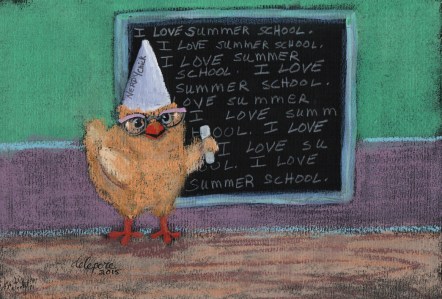 I LOVE SUMMER SCHOOL.
I LOVE SUMMER SCHOOL.
I LOVE SUMMER
SCHOOL. I LOVE
SUMMER SCHOOL.
OVE SUMMER
I LOVE SUMM
OOL. I LOVE
I LOVE SU
OL. I LOVE
SUMMER SCHOOL.
Nerdy Chick
delepere
2015